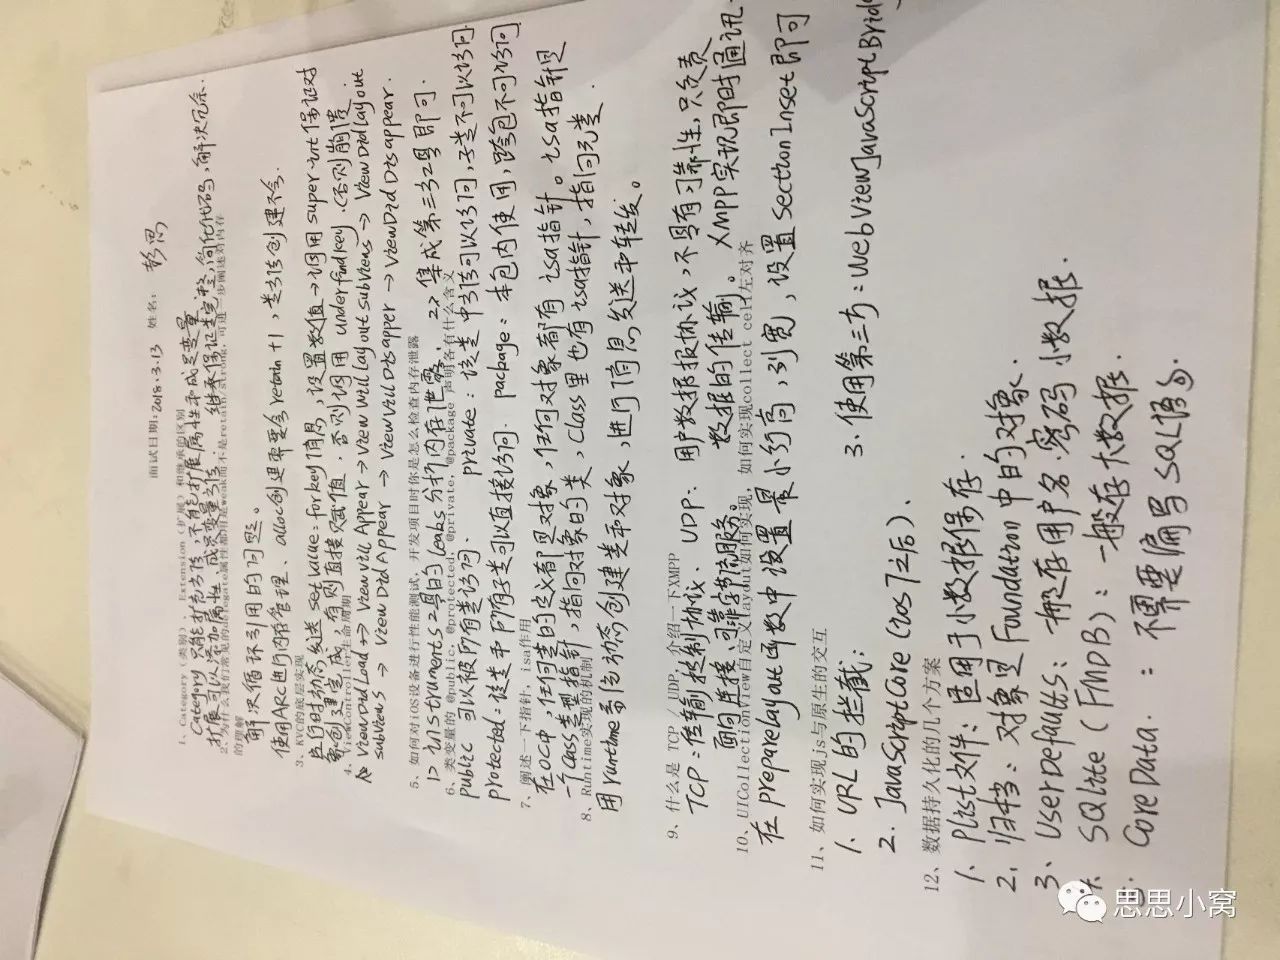 面试日期:2018.3.13 姓名: 彭思
1、Category（类别）、Extension（扩展）和继承的区别
Category 只能扩充方法,不能扩展属性和成员变量;
扩展可以添加属性、成员变量、方法 继承保证类完整,简化代码,解决冗余.
2、为什么我们常见的delegate属性都用是weak而不是retain/strong,可进一步阐述对内存
的理解
解决循环引用的问题。
使用ARC进行内存管理、alloc创建需要会 retain+1,类方法创建不会.
3、KVC的底层实现
运行时动态发送 setValue:forkey消息,设置数值→调用super.init保证对
象创建完成,有则直接赋值.否则调用 underfindkey.否则崩溃.
4、ViewController生命周期
ViewDidLoad→ViewWillAppear→ViewWillLayout subViews→ViewDidlayout
subViews→ViewDidAppear→ViewWillDisapper→ViewDidDisappear.
5、如何对iOS设备进行性能测试,开发项目时你是怎么检查内存泄露
1> Instruments工具的Leaks分析内存泄露 2> 集成第三方工具即可.
6、类变量的 @public、@protected、@private、@package 声明各有什么含义
public 可以被所有类访问. private:该类中方法可以访问,子类不可以访问.
protected:该类和所有子类可以直接访问. package:本包内使用,跨包不可访问
7、阐述一下指针、isa作用
在OC中,任何类的定义都是对象,任何对象都有isa指针。isa指针是
一个Class类型指针,指向对象的类,Class里也有isa指针,指向元类.
8、Runtime实现的机制
用runtime系统动态创建类和对象,进行消息发送和转发。
9、什么是 TCP / UDP、介绍一下XMPP
TCP:传输控制协议、UDP. 用户数据报协议,不具有可靠性,只负责
面向连接、可靠字节流服务。 数据的传输。XMPP实现即时通讯.
10、UICollectionView自定义layout如何实现,如何实现collect cell左对齐
在 preparelayout函数中设置最小行高,列宽,设置SectionInset即可
11、如何实现js与原生的交互
1、URL的拦截; 3.使用第三方:WebViewJavaScriptBrid
2、JavaScriptCore (ios7之后).
12、数据持久化的几个方案
1、Plist文件:适用于小数据保存.
2、归档:对象是Foundation中的对象.
3、UserDefaults: 一般存用户名.密码 小数据.
4. SQLite (FMDB):一般存大数据
5. CoreData.:不需要编写SQL语句
思思小窝